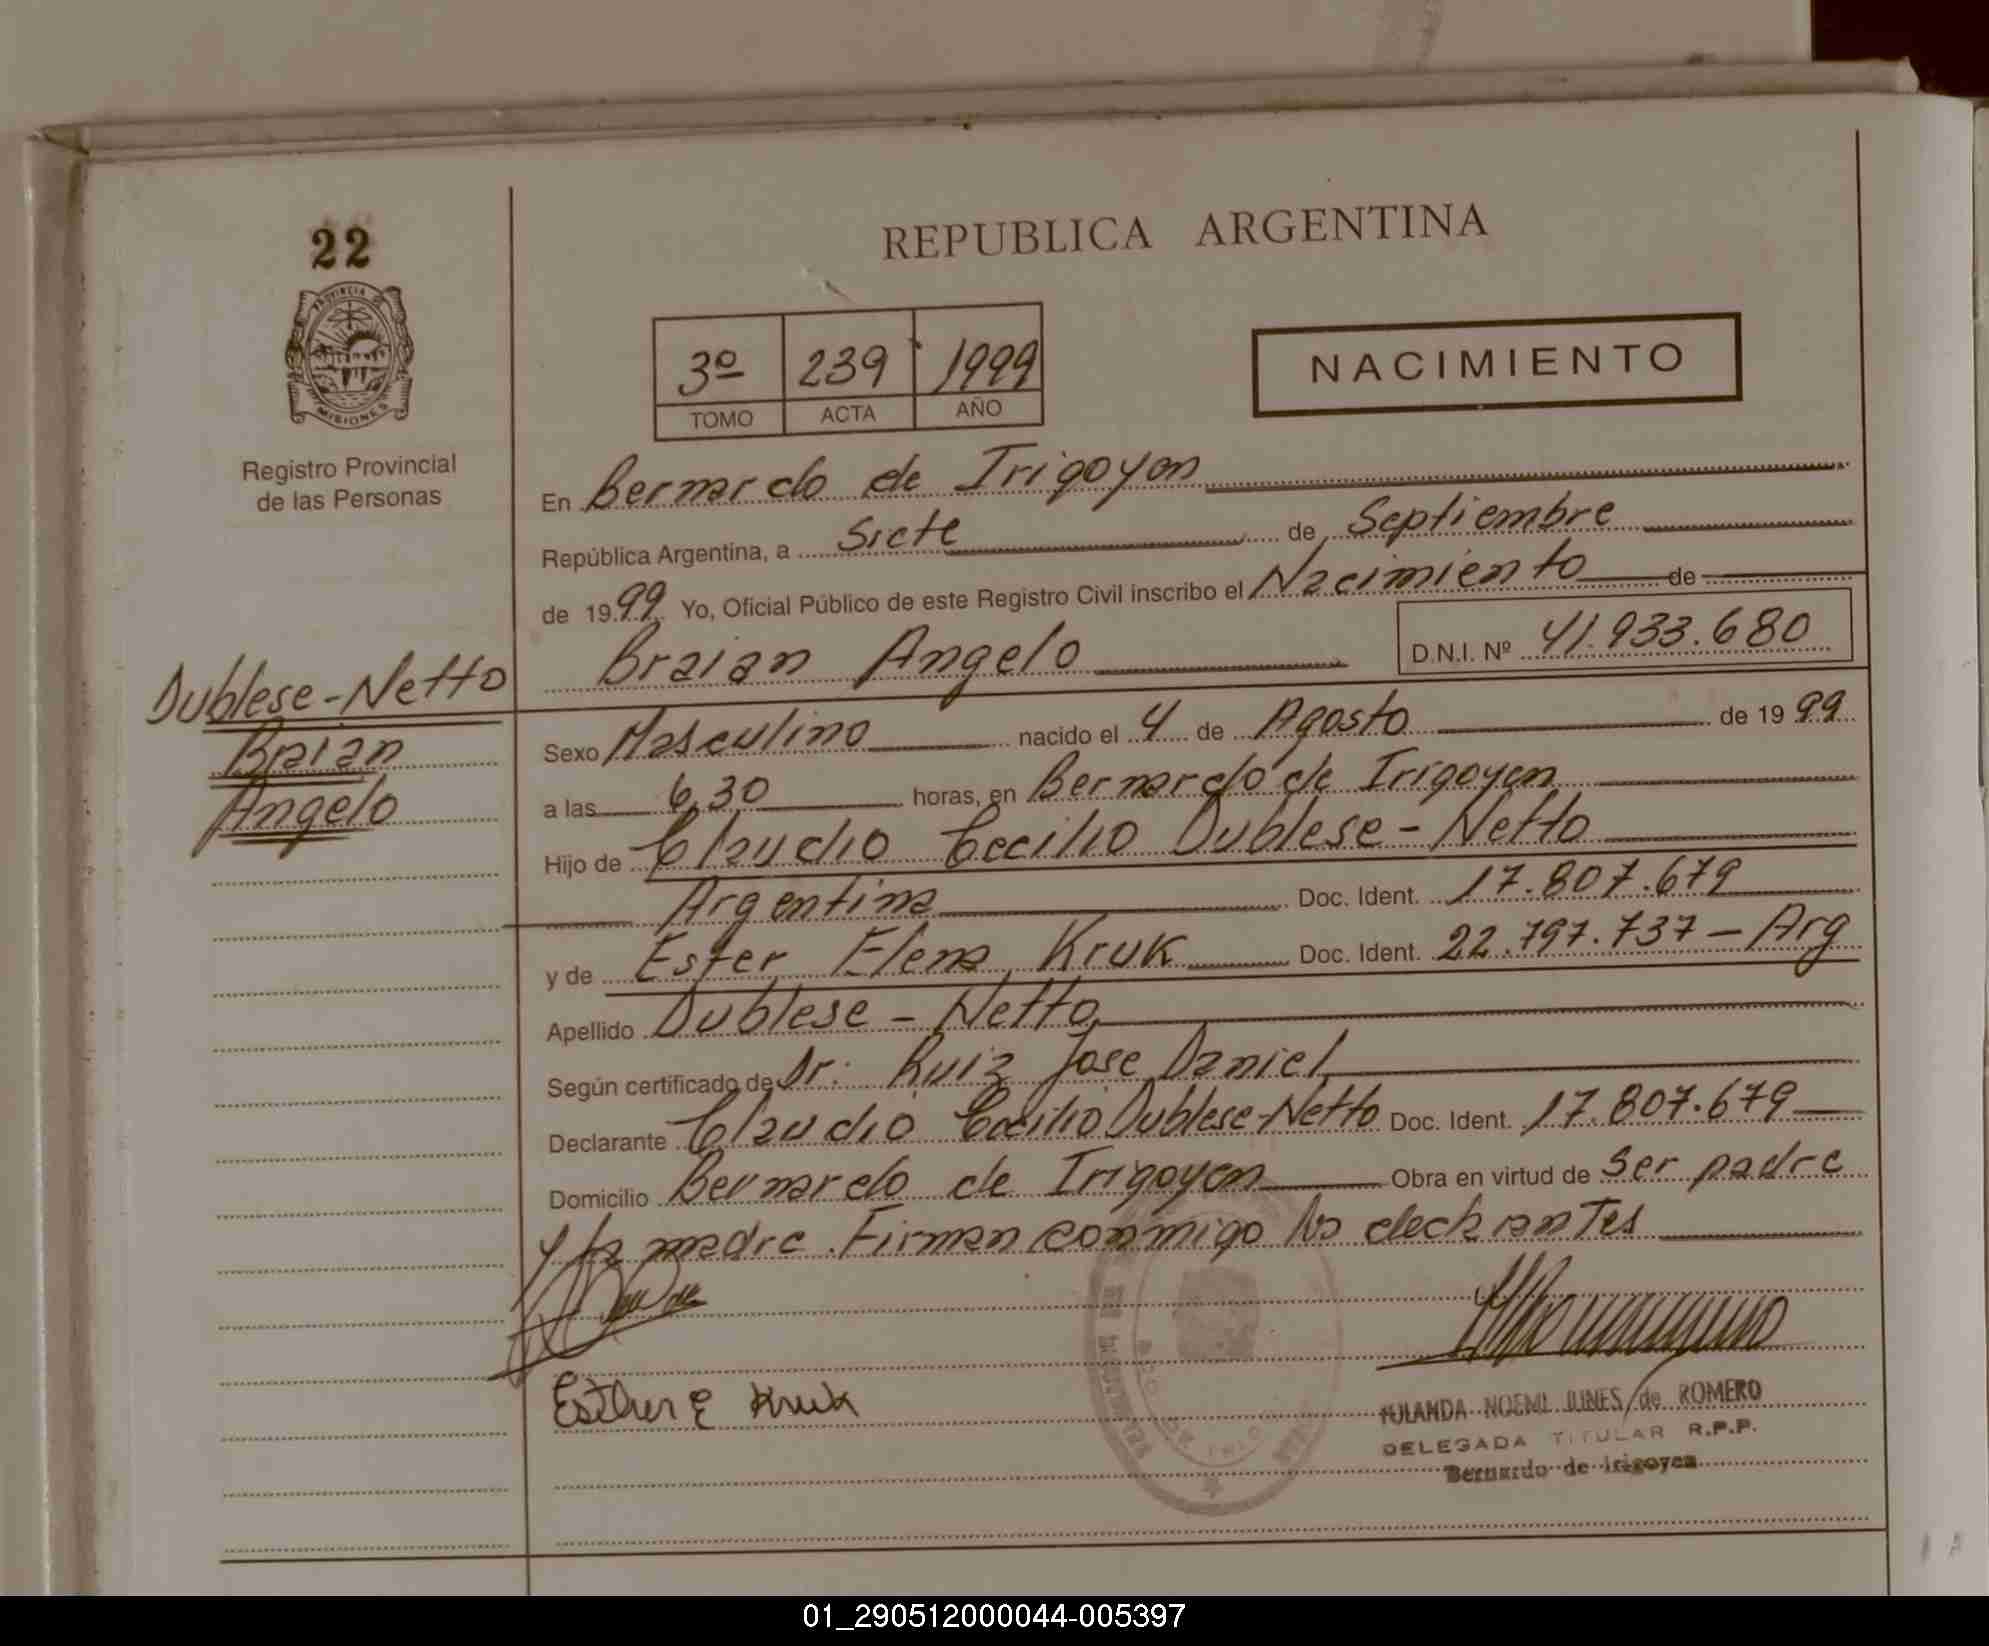 22
PROVINCIA DE
MISIONES
Registro Provincial
de las Personas
Dublese-Netto
Braian
Angelo
REPUBLICA ARGENTINA
3º 239 1999
TOMO ACTA AÑO
NACIMIENTO
En Bernardo de Irigoyen
República Argentina, a Siete de Septiembre
de 1999 Yo, Oficial Público de este Registro Civil inscribo el Nacimiento de
Braian Angelo D.N.I. Nº 41.933.680
Sexo Masculino nacido el 4 de Agosto de 1999
a las 6,30 horas, en Bernardo de Irigoyen
Hijo de Claudio Cecilio Dublese - Netto
Argentina Doc. Ident. 17.807.679
y de Ester Elena Kruk Doc. Ident. 22.797.737 - Arg
Apellido Dublese - Netto
Según certificado de Dr. Ruiz Jose Daniel
Declarante Claudio Cecilio Dublese-Netto Doc. Ident. 17.807.679
Domicilio Bernardo de Irigoyen Obra en virtud de Ser padre
y la madre. Firman conmigo los declarantes
Esther E Kruk
NOEMI de ROMERO
DELEGADA TITULAR R.P.P.
Bernardo de Irigoyen
01_290512000044-005397